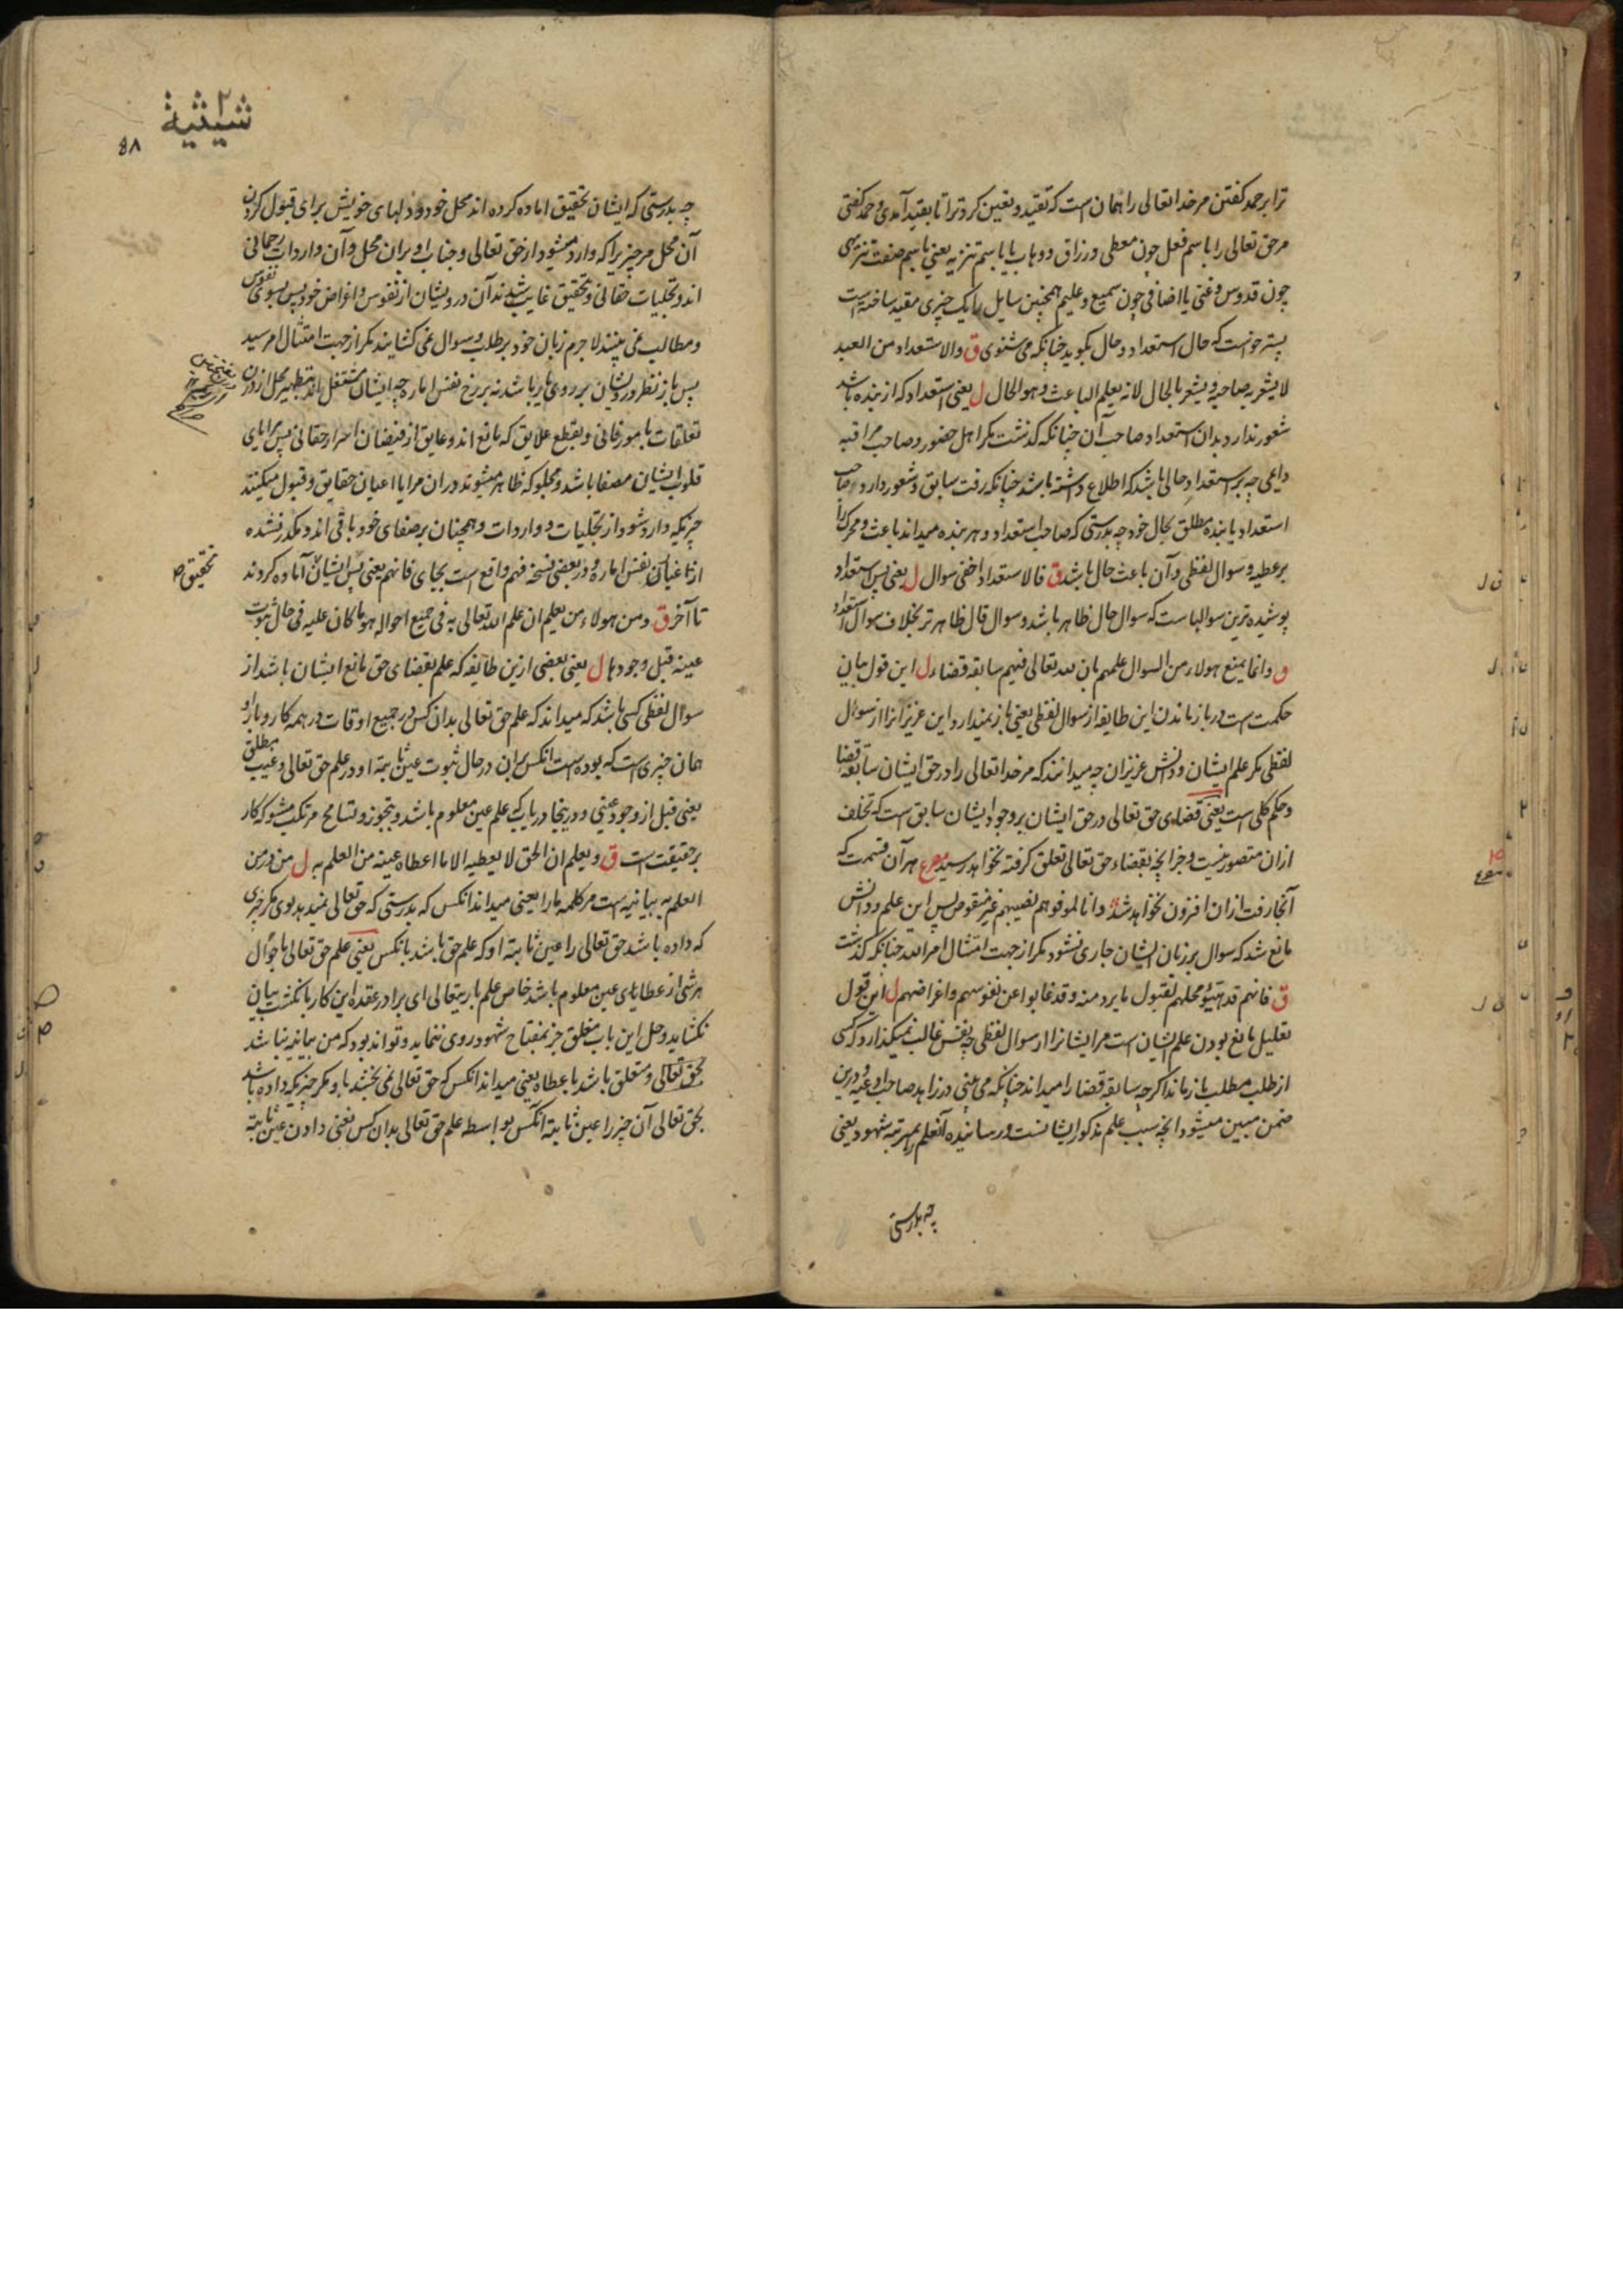 ترا بر حمد گفتن مر خدایتعالی را همان است که تقیید و تعین کرد ترا تا بقید آمدی و حمد گفتی
مر حق تعالی را باسم فعل چون معطی و رزاق و وهاب یا باسم تنزیه یعنی باسم صفت تنزیهی
چون قدوس و غنی یا اضافی چون سمیع و علیم همچنین سایل را یک چیزی مقید ساخته است
پستر خواست که حال استعداد و حال بگوید چنانکه می شنوی ق والاستعداد من العبد
لا یشعر به صاحبه و یشعر بالحال لانه یعلم الباعث و هو الحال ل یعنی استعداد که از بنده باشد
شعور ندارد بدان استعداد صاحب آن چنانکه گذشت مگر اهل حضور و صاحب مراقبه
دایمی چه بر استعداد حالی باشد که اطلاع داشته باشد چنانکه رفت سابق و شعور دارد صاحب
استعداد یا بنده مطلق بحال خود چه بدرستی که صاحب استعداد و هر بنده میداند باعث و محرک را
بر عطیه و سوال لفظی و آن باعث حال باشد ق فالاستعداد اخفی سوال ل یعنی پس استعداد
پوشیده ترین سوالهاست که سوال حال ظاهر باشد و سوال قال ظاهرتر بخلاف سوال استعداد
ق وانما یمنع هولاء من السوال علمهم بان لله تعالی فیهم سابقه قضاء ل این قول بیان
حکمت است در باز ماندن این طایفه از سوال لفظی یعنی باز نمیدارد این عزیزانرا از سوال
لفظی مگر علم ایشان و دانش عزیزان چه میدانند که مر خدایتعالی را در حق ایشان سابقه قضا
و حکم کلی است یعنی قضای حق تعالی در حق ایشان بر وجود ایشان سابق است که تخلف
ازان متصور نیست و جز آنچه بقضاء حق تعالی تعلق گرفته نخواهد رسید مصرع هر آن قسمت که
آنجا رفت ازان افزون نخواهد شد وانا لموفوهم نصیبهم غیر منقوص پس این علم و دانش
مانع شد که سوال بر زبان ایشان جاری نشود مگر از جهت امتثال امر الله چنانکه گذشت
ق فانهم قد هیئوا محلهم لقبول ما یرد منه وقد غابوا عن نفوسهم واغراضهم ل این قول
تعلیل مانع بودن علم ایشان است مر ایشانرا از سوال لفظی چه نفس غالب نمیگذارد که کسی
از طلب مطلب باز ماند اگرچه سابقه قضا را میداند چنانکه می بینی در زاهد صاحب ادعیه و درین
ضمن مبین میشود آنچه سبب علم مذکور ایشانست و رسانیده آنعلم را بمرتبه شهود یعنی
چه بدرستی
شیثیة
۵۸
چه بدرستی که ایشان تحقیق آماده کرده اند محل خود و دلهای خویش برای قبول کردن
آن محل مر چیز را که وارد میشود از حق تعالی و جناب او بران محل و آن واردات رحمانی
اند و تجلیات حقانی و تحقیق غایب شدند آن درویشان از نفوس و اغراض خود پس بسوی نفوس
و مطالب نمی بینند لا جرم زبان خود بر طلب و سوال نمی گشایند مگر از جهت امتثال امر سید
پس باز نظر درویشان بر روی یار باشد نه بر رخ نفس اماره چه ایشان مشتغل اند بتطهیر محل از درن
تعلقات بامور فانی و بقطع علایق که مانع اند و عایق از فیضان اسرار حقانی پس مرایای
قلوب ایشان مصفا باشد و مجلو که ظاهر میشوند دران مرایا اعیان حقایق و قبول میکنند
چیزیکه وارد شود از تجلیات و واردات و همچنان بر صفای خود باقی اند و مکدر نشده
از طغیان نفس اماره و در بعضی نسخه فهم واقع است بجای فانهم یعنی پس ایشان آماده کردند
تحقیق صح
تا آخر ق ومن هولاء من یعلم ان علم الله تعالی به فی جمیع احواله هو ما کان علیه فی حال ثبوت
عینه قبل وجودها ل یعنی بعضی ازین طایفه که علم بقضای حق مانع ایشان باشد از
سوال لفظی کسی باشد که میداند که علم حق تعالی بدان کس در جمیع اوقات در همه کار و بار او
همان چیزی است که بوده است آنکس بران در حال ثبوت عین ثابته او در علم حق تعالی و غیب مطلق
یعنی قبل از وجود عینی و در اینجا دریاب که علم عین معلوم باشد و بتجوز و تسامح مرتکب مشو که کار
بر حقیقت است ق ویعلم ان الحق لا یعطیه الا ما اعطاه عینه من العلم به ل من در من
العلم به بیانیه است مر کلمه ما را یعنی میداند آنکس که بدرستی که حق تعالی نمیدهد بوی مگر چیزی
که داده باشد حق تعالی را عین ثابته او که علم حق باشد بآنکس یعنی علم حق تعالی باحوال
هر شی از عطایای عین معلوم باشد خاص علم باریتعالی ای برادر عقده این کار بانگشت بیان
نگشاید و حل این باب مغلق جز بمفتاح شهود روی ننماید و تواند بود که من بیانیه نباشد
بحق تعالی و متعلق باشد باعطاه یعنی میداند آنکس که حق تعالی نمی بخشد باو مگر چیزیکه داده باشد
بحق تعالی آن چیز را عین ثابته آنکس بواسطه علم حق تعالی بدان کس یعنی دادن عین ثابته